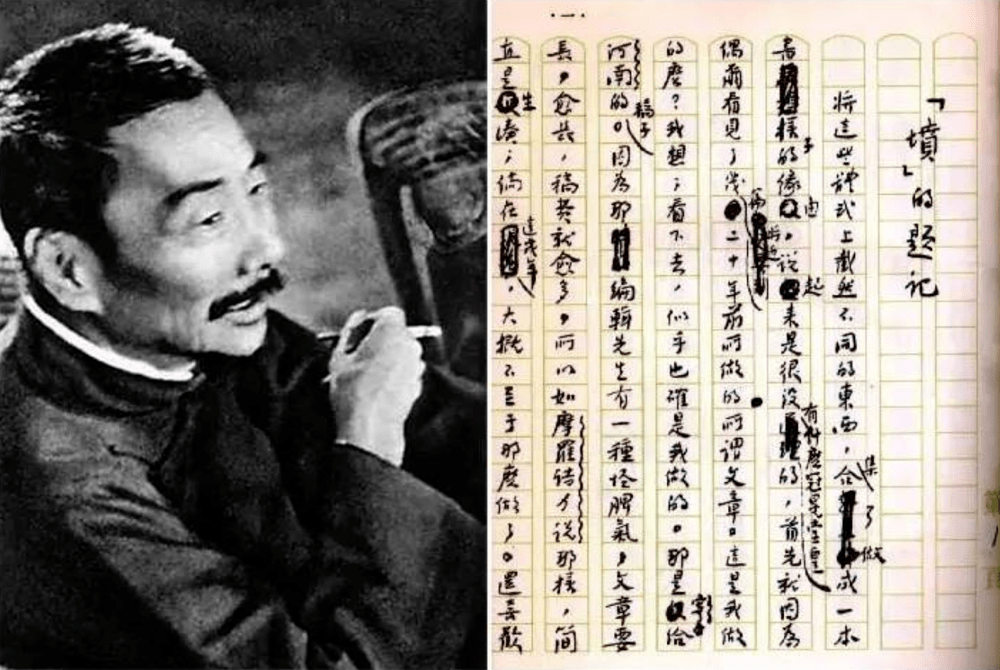 ·一·
「墳」的題記
將這些體式上截然不同的東西,集合了做成一本
書樣子的緣由,說起來是很沒有什麼冠冕堂皇的,首先就因為
偶爾看見了幾篇將近二十年前所做的所謂文章。這是我做
的麼?我想;看下去,似乎也確是我做的。那是寄給
河南的稿子。因為那編輯先生有一種怪脾氣,文章要
長,愈長,稿費就愈多,所以如摩羅詩力說那樣,簡
直是生湊;倘在這幾年,大概不至于那麼做了。還喜歡